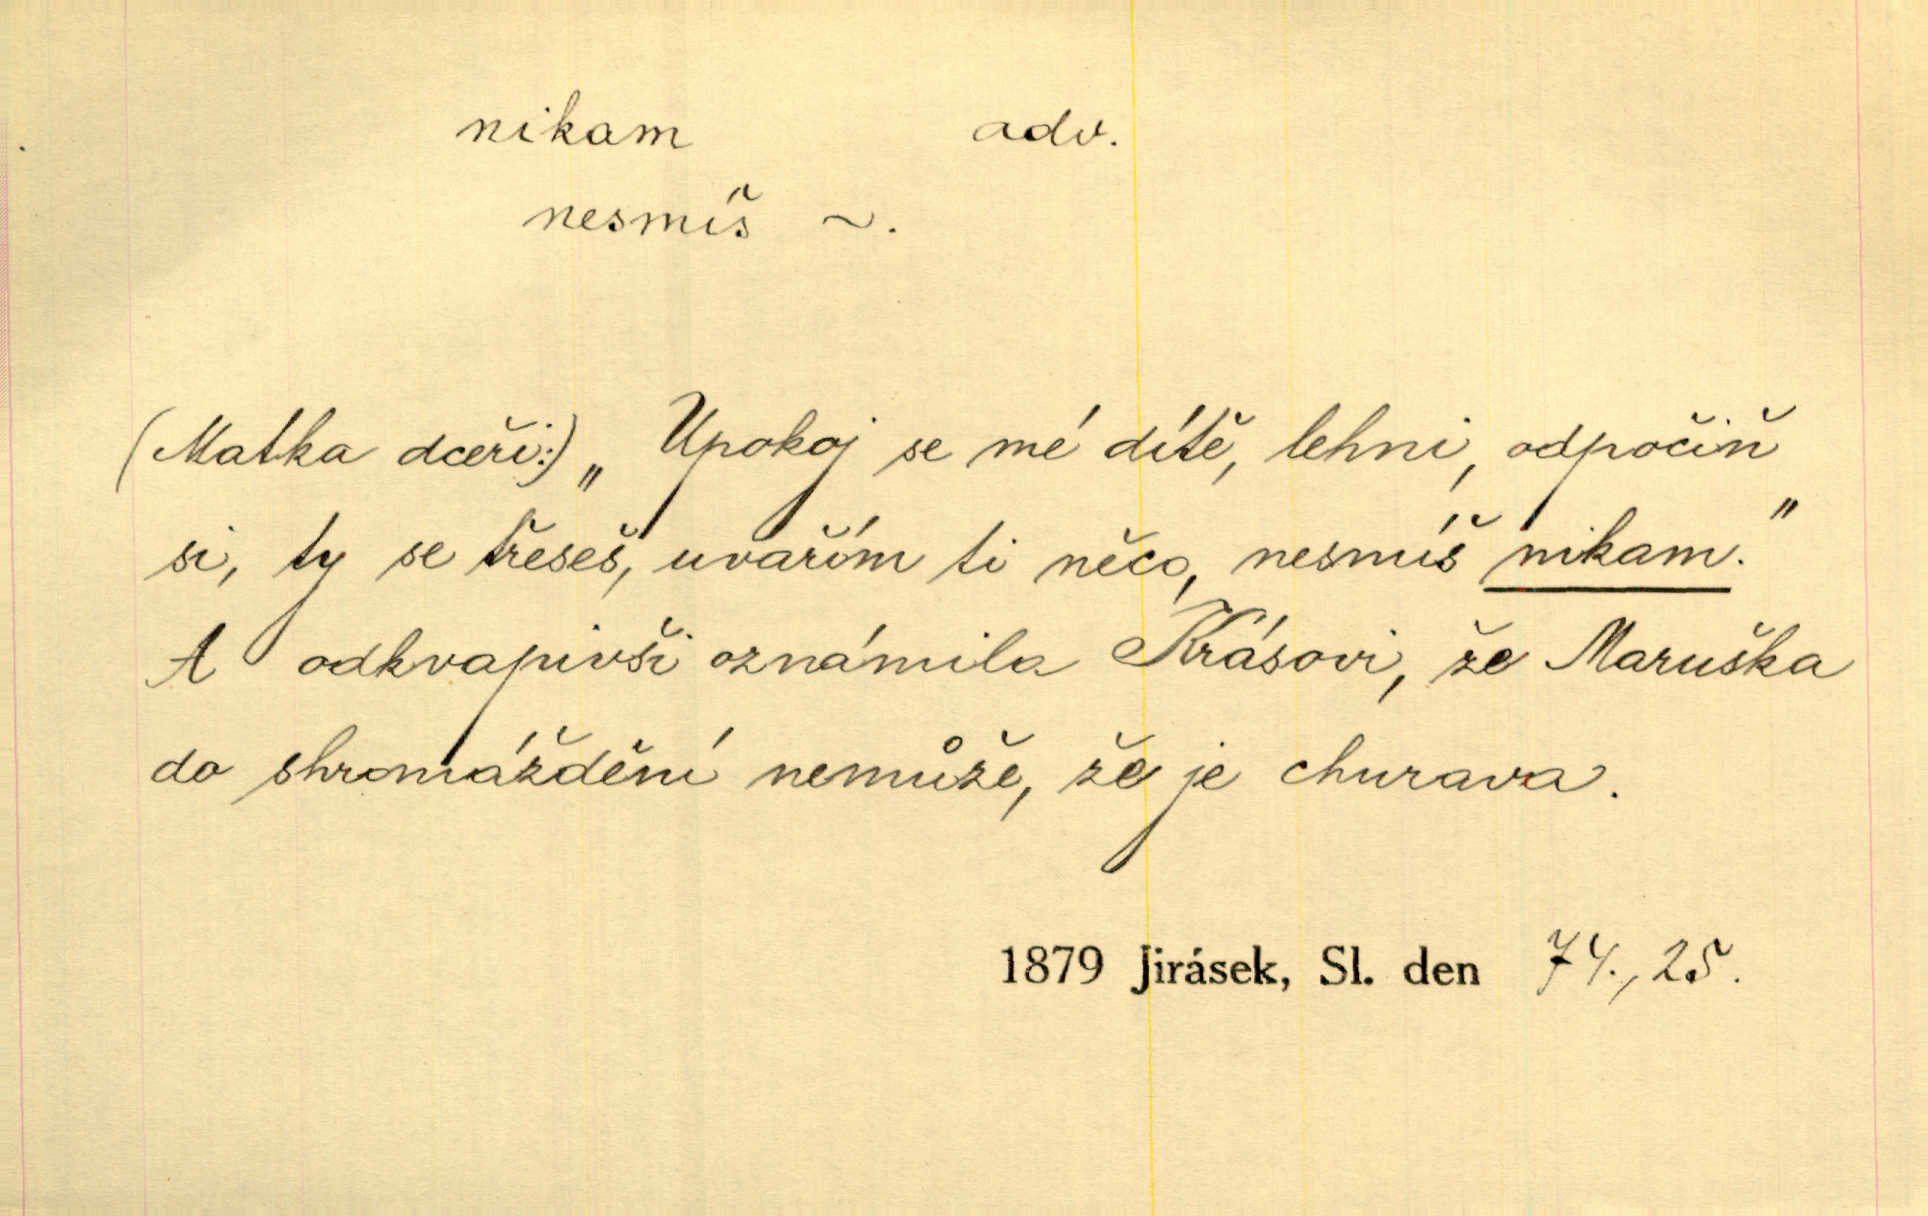 nikam adv.
nesmíš ~.
(Matka dceři:) „Upokoj se mé dítě, lehni, odpočiň
si, ty se třeseš, uvařím ti něco, nesmíš nikam."
A odkvapivši oznámila Krásovi, že Maruška
do shromáždění nemůže, že je churava.
1879 Jirásek, Sl. den 74., 25.